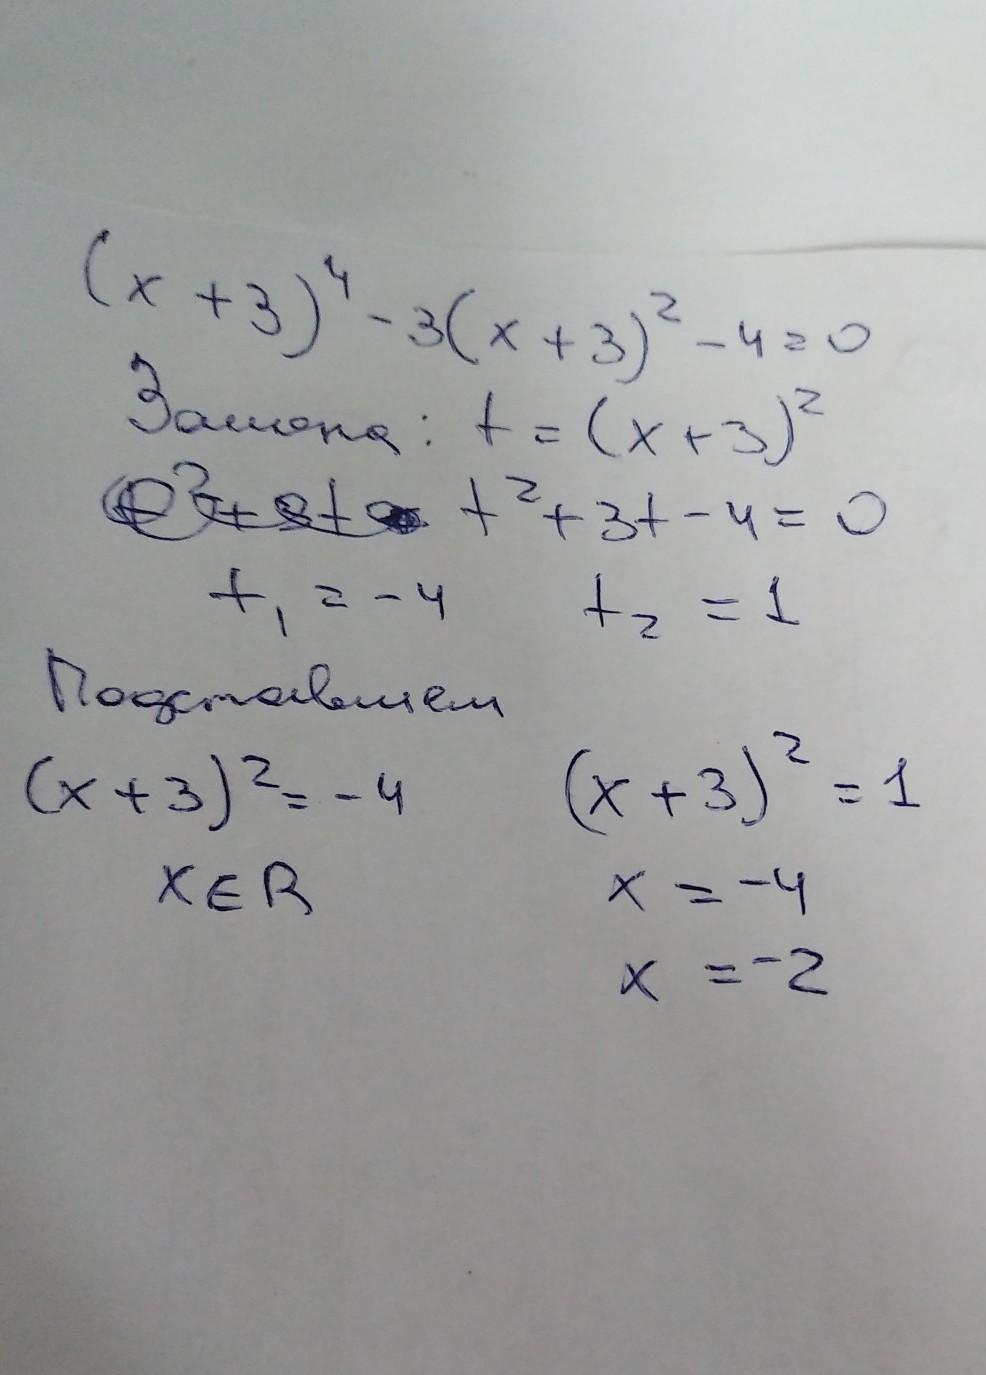 (x + 3)⁴ - 3(x + 3)² - 4 = 0
Замена: t = (x + 3)²
t² + 3t - 4 = 0
t₁ = -4 t₂ = 1
Подставляем
(x + 3)² = -4 (x + 3)² = 1
x ∈ R x = -4
x = -2